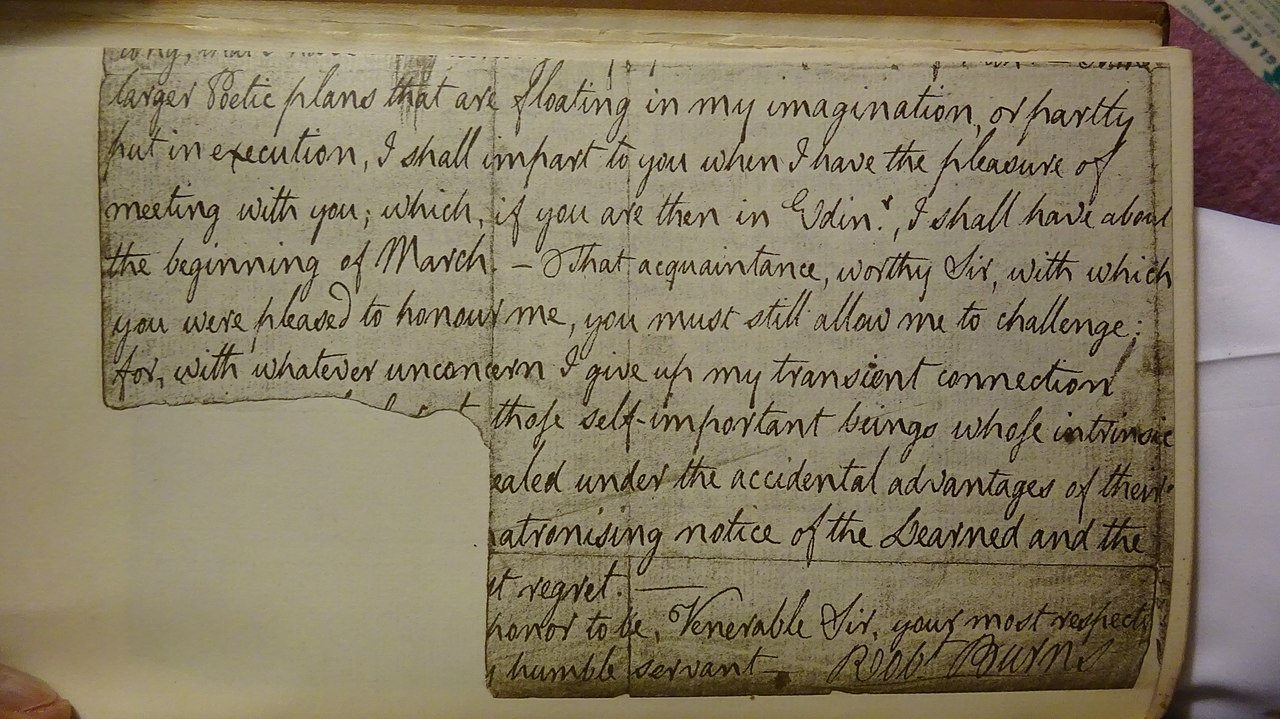 larger Poetic plans that are floating in my imagination, or partly
put in execution, I shall impart to you when I have the pleasure of
meeting with you; which, if you are then in Edinr., I shall have about
the beginning of March. — That acquaintance, worthy Sir, with which
you were pleased to honour me, you must still allow me to challenge;
for, with whatever unconcern I give up my transient connection
those self-important beings whose intrinsic
ealed under the accidental advantages of their
atronising notice of the Learned and the
t regret. —
honor to be, Venerable Sir, your most respect
humble servant — Robt Burns